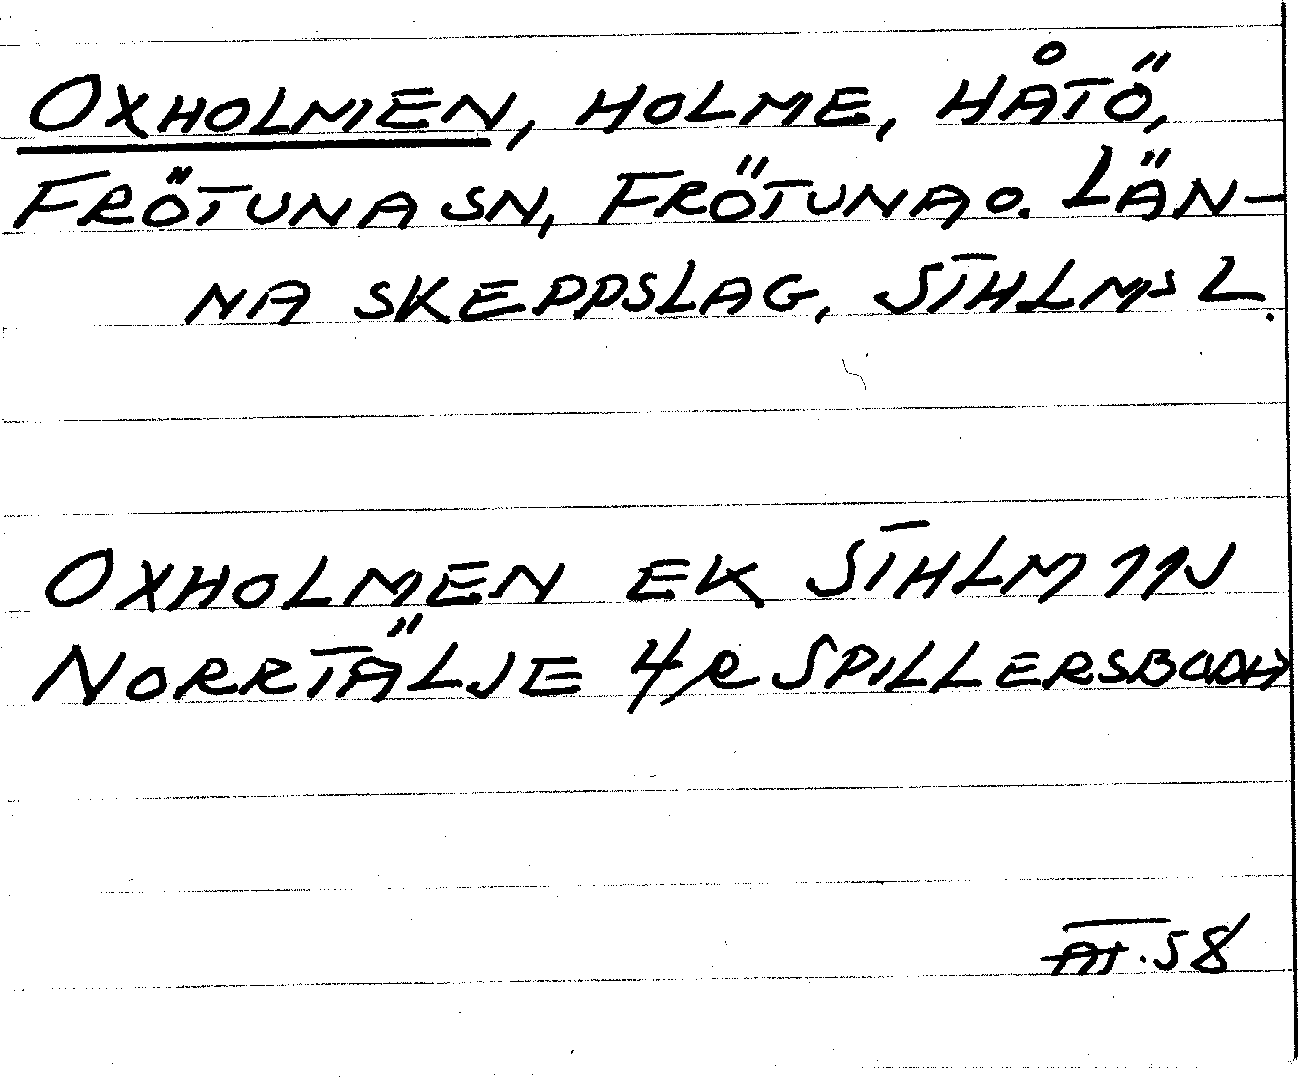 OXHOLMEN, HOLME, HÅTÖ,
FRÖTUNA SN, FRÖTUNA O. LÄN-
NA SKEPPSLAG, STHLMS L.
OXHOLMEN EK STHLM 11NJ
NORRTÄLJE 4/R SPILLERSBODA
AT. 58